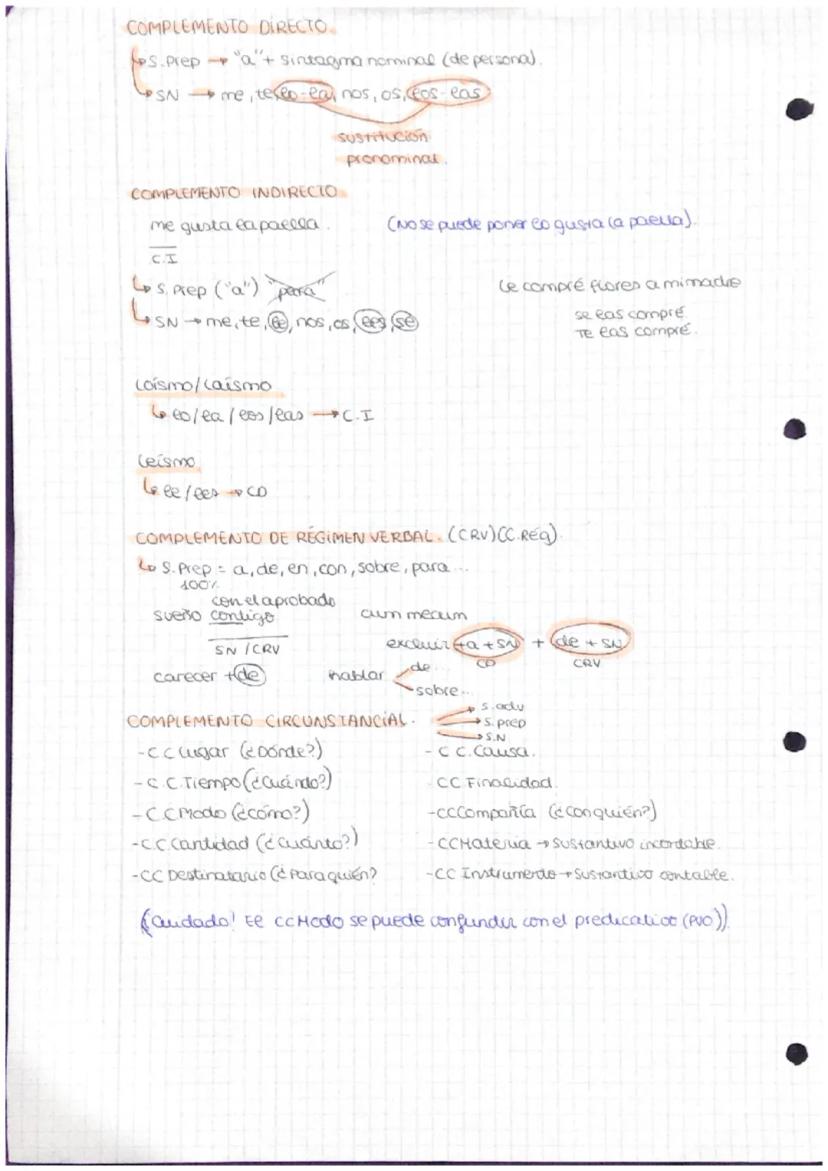 COMPLEMENTO DIRECTO.
↳ S.Prep → "a" + sintagma nominal (de persona).
↳ SN → me, te, lo-la, nos, os, los-las
sustitución
pronominal.
COMPLEMENTO INDIRECTO
me gusta la paella. (No se puede poner lo gusta la paella).
C.I
↳ S. Prep ("a") "para" le compré flores a mi madre
se las compré
↳ SN → me, te, le, nos, os, les, se
Te las compré.
Loísmo/Laísmo
↳ lo/la/los/las → C.I
Leísmo
↳ le/les → CD
COMPLEMENTO DE RÉGIMEN VERBAL. (CRV)(C.Rég).
↳ S.Prep = a, de, en, con, sobre, para...
100%
con el aprobado
sueño contigo cum mecum
SN/CRV excluir + a + SN + de + SN
CD CRV
carecer + de hablar de...
sobre...
COMPLEMENTO CIRCUNSTANCIAL. → S.adv
→ S.prep
→ S.N
- CC Lugar (¿Dónde?) - CC. Causa.
- C.C. Tiempo (¿Cuándo?) CC Finalidad.
- C.C Modo (¿cómo?) - CC Compañía (¿con quién?)
- C.C. Cantidad (¿Cuánto?) - CC Materia → Sustantivo incontable.
- CC Destinatario (¿Para quién? - CC Instrumento → Sustantivo contable.
(Cuidado! El CC Modo se puede confundir con el predicativo (PVO)).